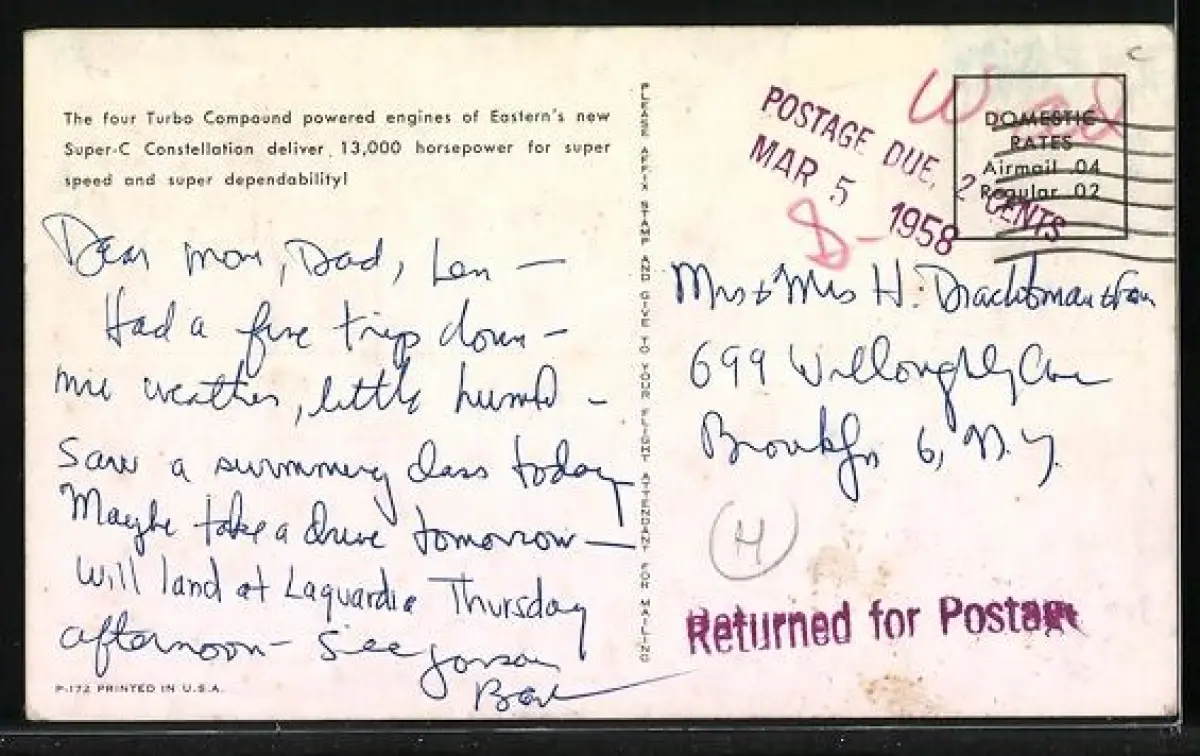 The four Turbo Compound powered engines of Eastern's new
Super-C Constellation deliver 13,000 horsepower for super
speed and super dependability!
Dear Mom, Dad, Len —
Had a fine trip down –
weather, little humid –
Saw a swimming class today
Maybe take a drive tomorrow —
Will land at Laguardia Thursday
afternoon – See you soon
P-172 PRINTED IN U.S.A.
PLEASE AFFIX STAMP AND GIVE TO YOUR FLIGHT ATTENDANT FOR MAILING
POSTAGE DUE, 2 CENTS
MAR 5 1958
DOMESTIC
RATES
Airmail .04
Regular .02
Mr + Mrs H. Drachtman + Fam
699 Willoughby Ave
Brooklyn 6, N.Y.
H
Returned for Postage